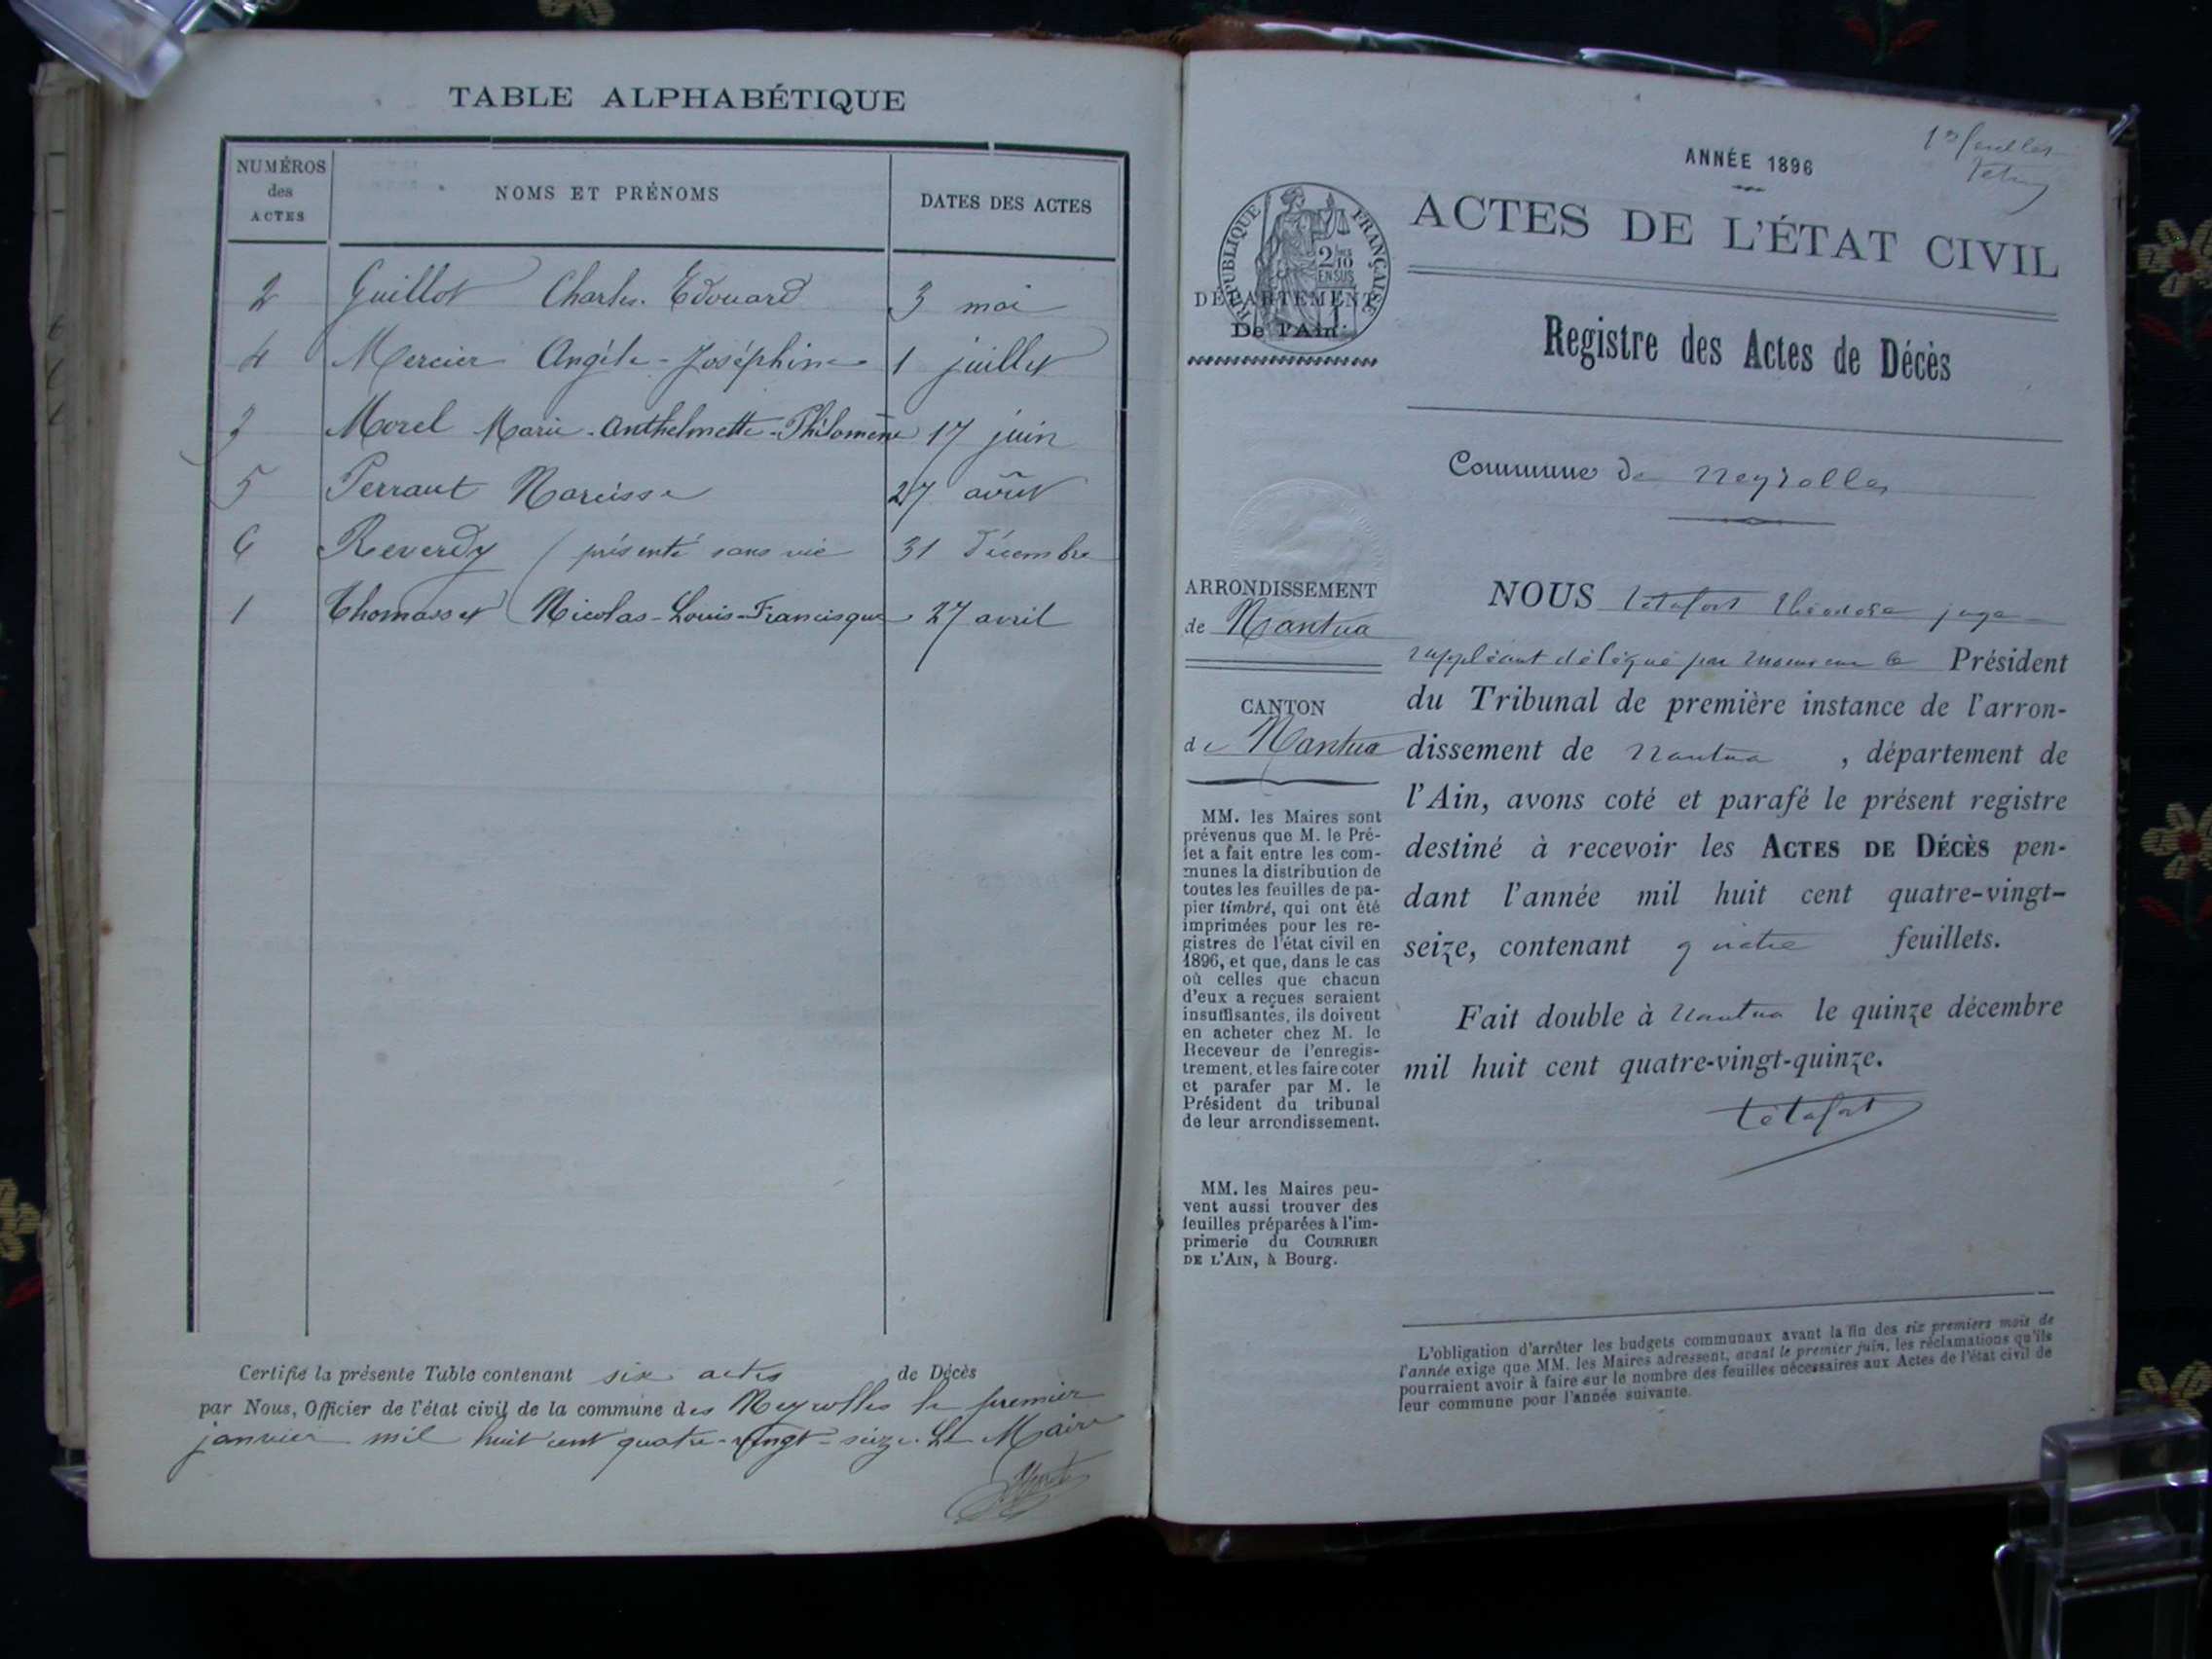 TABLE ALPHABÉTIQUE
NUMÉROS
des
ACTES
NOMS ET PRÉNOMS
DATES DES ACTES
2 Guillot Charles-Edouard 3 mai
4 Mercier Angèle-Joséphine 1 juillet
3 Morel Marie-Anthelmette-Philomène 17 juin
5 Perraut Narcisse 27 août
6 Reverdy (présenté sans vie 31 Décembre
1 Thomasset Nicolas-Louis-Francisque 27 avril
Certifié la présente Table contenant six actes de Décès
par Nous, Officier de l'état civil de la commune des Neyrolles le premier
janvier mil huit cent quatre-vingt-seize. Le Maire
ANNÉE 1896
ACTES DE L'ÉTAT CIVIL
RÉPUBLIQUE FRANÇAISE
2/10
EN SUS
DÉPARTEMENT
De l'Ain.
Registre des Actes de Décès
Commune de Neyrolles
ARRONDISSEMENT
de Nantua
CANTON
de Nantua
MM. les Maires sont
prévenus que M. le Pré-
fet a fait entre les com-
munes la distribution de
toutes les feuilles de pa-
pier timbré, qui ont été
imprimées pour les re-
gistres de l'état civil en
1896, et que, dans le cas
où celles que chacun
d'eux a reçues seraient
insuffisantes, ils doivent
en acheter chez M. le
Receveur de l'enregis-
trement, et les faire coter
et parafer par M. le
Président du tribunal
de leur arrondissement.
MM. les Maires peu-
vent aussi trouver des
feuilles préparées à l'im-
primerie du COURRIER
DE L'AIN, à Bourg.
NOUS Tétafort Théodore juge
suppléant délégué par Monsieur le Président
du Tribunal de première instance de l'arron-
dissement de Nantua , département de
l'Ain, avons coté et parafé le présent registre
destiné à recevoir les ACTES DE DÉCÈS pen-
dant l'année mil huit cent quatre-vingt-
seize, contenant quatre feuillets.
Fait double à Nantua le quinze décembre
mil huit cent quatre-vingt-quinze.
Tétafort
L'obligation d'arrêter les budgets communaux avant la fin des six premiers mois de
l'année exige que MM. les Maires adressent, avant le premier juin, les réclamations qu'ils
pourraient avoir à faire sur le nombre des feuilles nécessaires aux Actes de l'état civil de
leur commune pour l'année suivante.